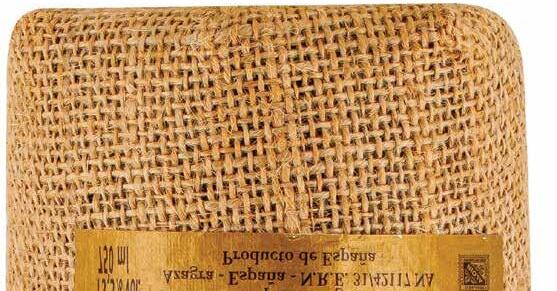 13,5% vol.
750 ml
Azagra - España - N.R.E. 31/42117 NA
Producto de España